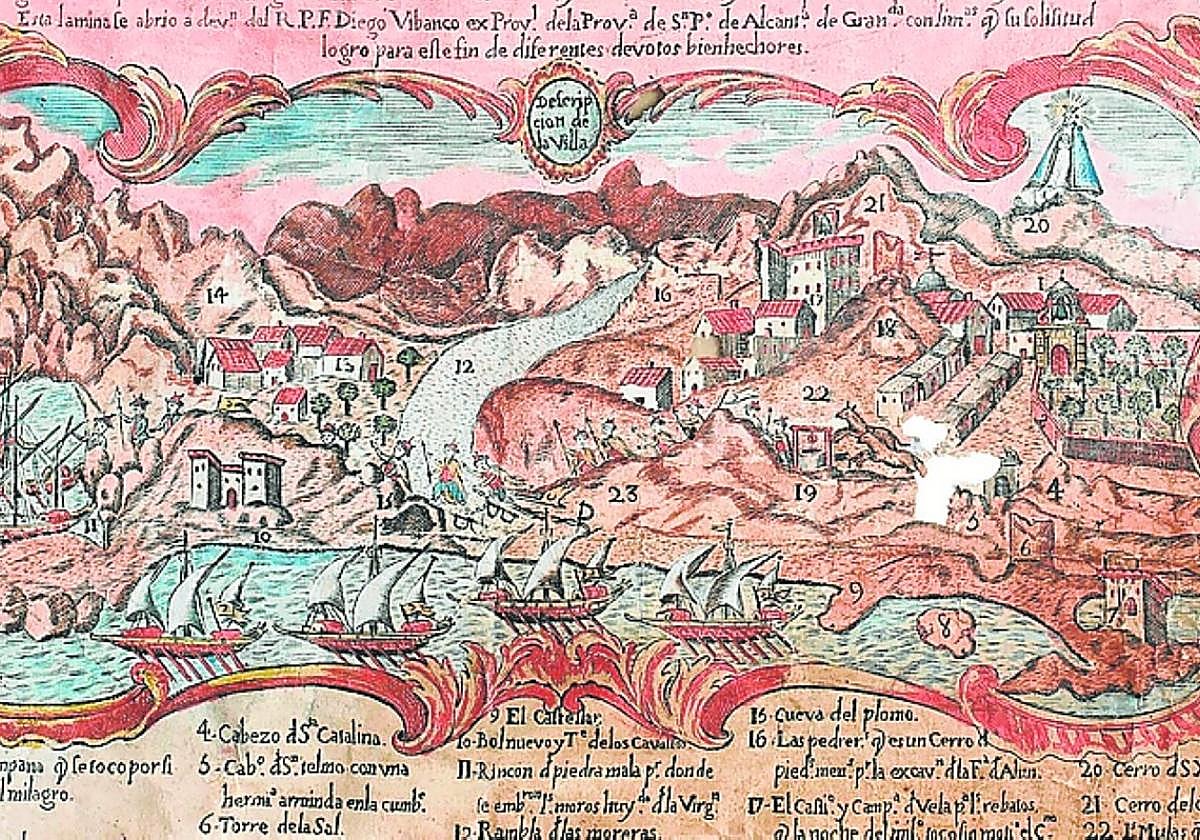 Esta lamina se abrio a devⁿ. del R. P. F. Diego Vibanco ex Provˡ. dela Provᵃ. de Sⁿ Pº. de Alcantᵃ. de Granᵈᵃ con limᵃˢ q̃ su solisitud
logro para este fin de diferentes devotos bienhechores.
Descrip
cion de
la Villa
20
21
14
16
17
15
12
18
22
23
19
4
5
6
11
10
9
8
7
npana q̃ se toco por si
l milagro.
4-Cabezo dSᵗᵃ Catalina.
5-Cabº. dSⁿ. telmo con vna
hermiᵃ arruinda enla cumbᵉ.
6-Torre dela Sal.
9 El Castellar.
10-Bolnuevo y Tᵉ delos Cavallos
11-Rincon d piedra mala pʳ. donde
se embʳᵒⁿ lˢ moros huyᵈᵒ dla Virgⁿ
12-Rambla dlas moreras.
15-Cueva del plomo.
16-Las pedrerˢ q̃ es un Cerro d
piedˢ menˢ pʳ la excavⁿ dla Fᵃ d Alun.
17-El Castº. y Campᵃ dVela pᵃ lˢ rebatos,
20 Cerro d S
21 Cerro del
22